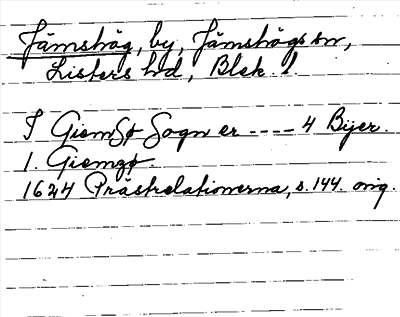 Jämshög, by, Jämshögs sn,
Listers hd, Blek. l.
I GiemSø Sogn er ---- 4 Bÿer.
1. Giemsø.
1624 Prästrelationerna, s. 144. orig.